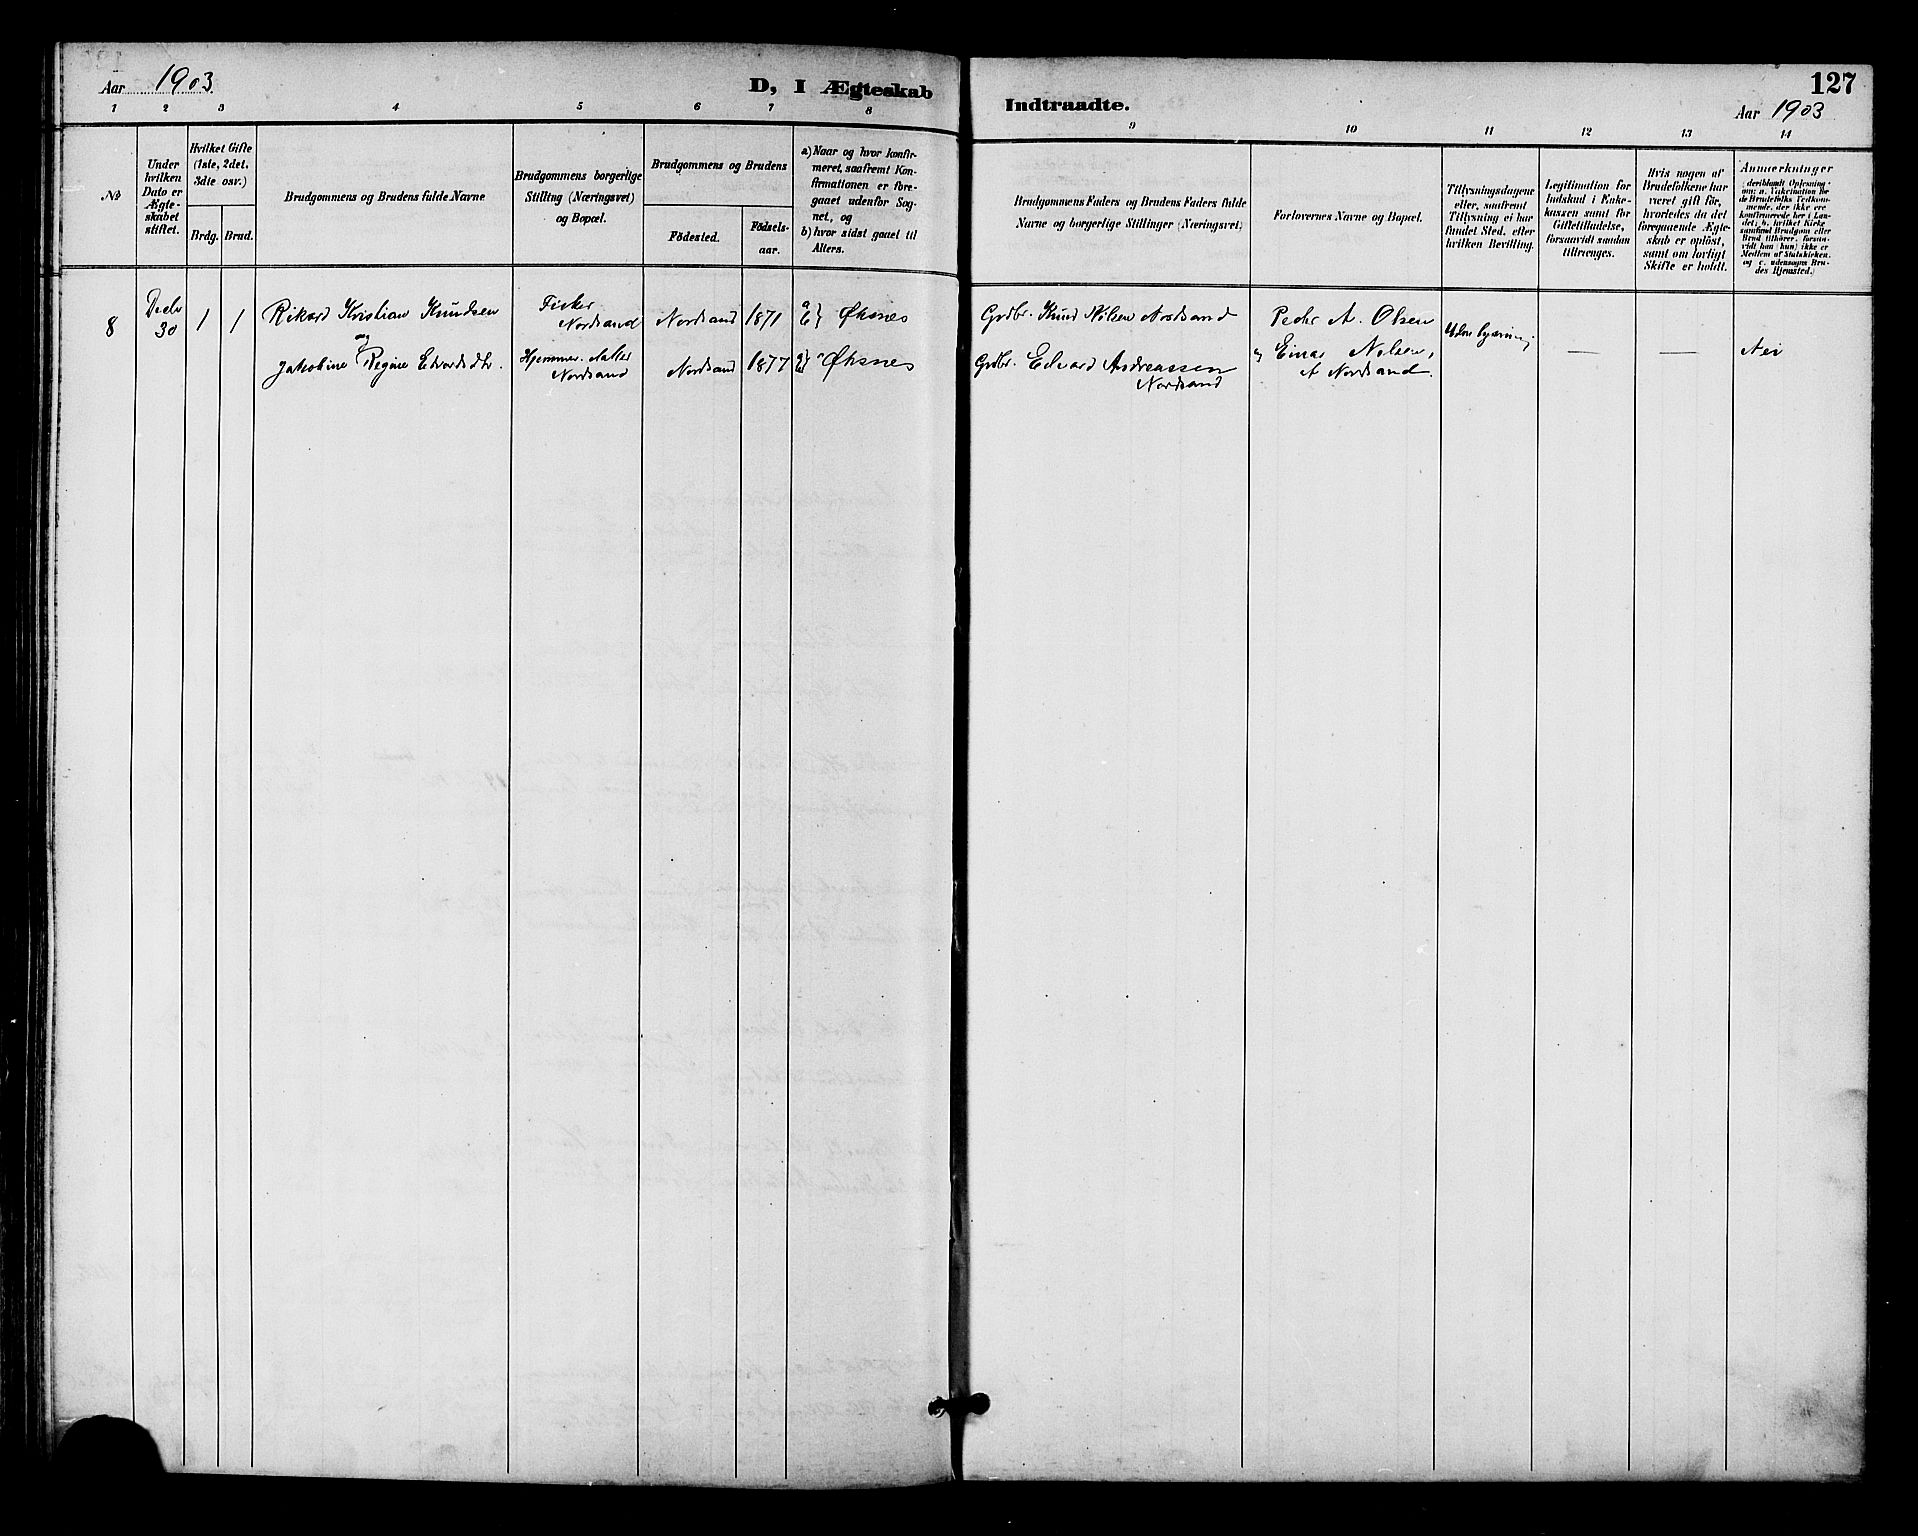 Aar 1903
D, I Ægteskab
1 2 3 4 5 6 7 8
№
Under hvilken Dato er Ægteskabet stiftet.
Hvilket Gifte (1ste, 2det, 3die osv.)
Brdg. Brud.
Brudgommens og Brudens fulde Navne
Brudgommens borgerlige Stilling (Næringsvei) og Bopæl.
Brudgommens og Brudens
Fødested.
Fødselsaar.
a) Naar og hvor konfirmeret, saafremt Konfirmationen er foregaaet udenfor Sognet, og
b) hvor sidst gaaet til Alters.
8
Decbr
30
1 1
Rikard Kristian Knudsen
og
Jakobine Regine Edvardsdtr.
Fisker
Nordsand
Hjemmev. Datter
Nordsand
Nordsand 1871
Øksnes
Nordsand 1877
Øksnes
Indtraadte.
127
Aar 1903
9 10 11 12 13 14
Brudgommens Faders og Brudens Faders fulde
Navne og borgerlige Stillinger (Næringsvei)
Forlovernes Navne og Bopæl.
Tillysningsdagene eller, saafremt Tillysning ei har fundet Sted, efter hvilken Bevilling.
Legitimation for Indskud i Enkekassen samt for Giftetilladelse, forsaavidt saadan tiltrænges.
Hvis nogen af Brudefolkene har været gift før, hvorledes da det foregaaende Ægteskab er opløst, samt om lovligt Skifte er holdt.
Anmærkninger
(deriblandt Oplysning om: a. Vakcination for de Brudefolks Vedkommende, der ikke ere konfirmerede her i Landet; b. hvilket Kirkesamfund Brudgom eller Brud tilhører, forsaavidt han (hun) ikke er Medlem af Statskirken, og c. udensogns Brudes Hjemsted.)
Grdbr. Knud Nilsen Nordsand
Grdbr. Edvard Andreassen
Nordsand
Peder A. Olsen
og Einar Nilsen,
A Nordsand.
Uden lysning
—
—
Nei